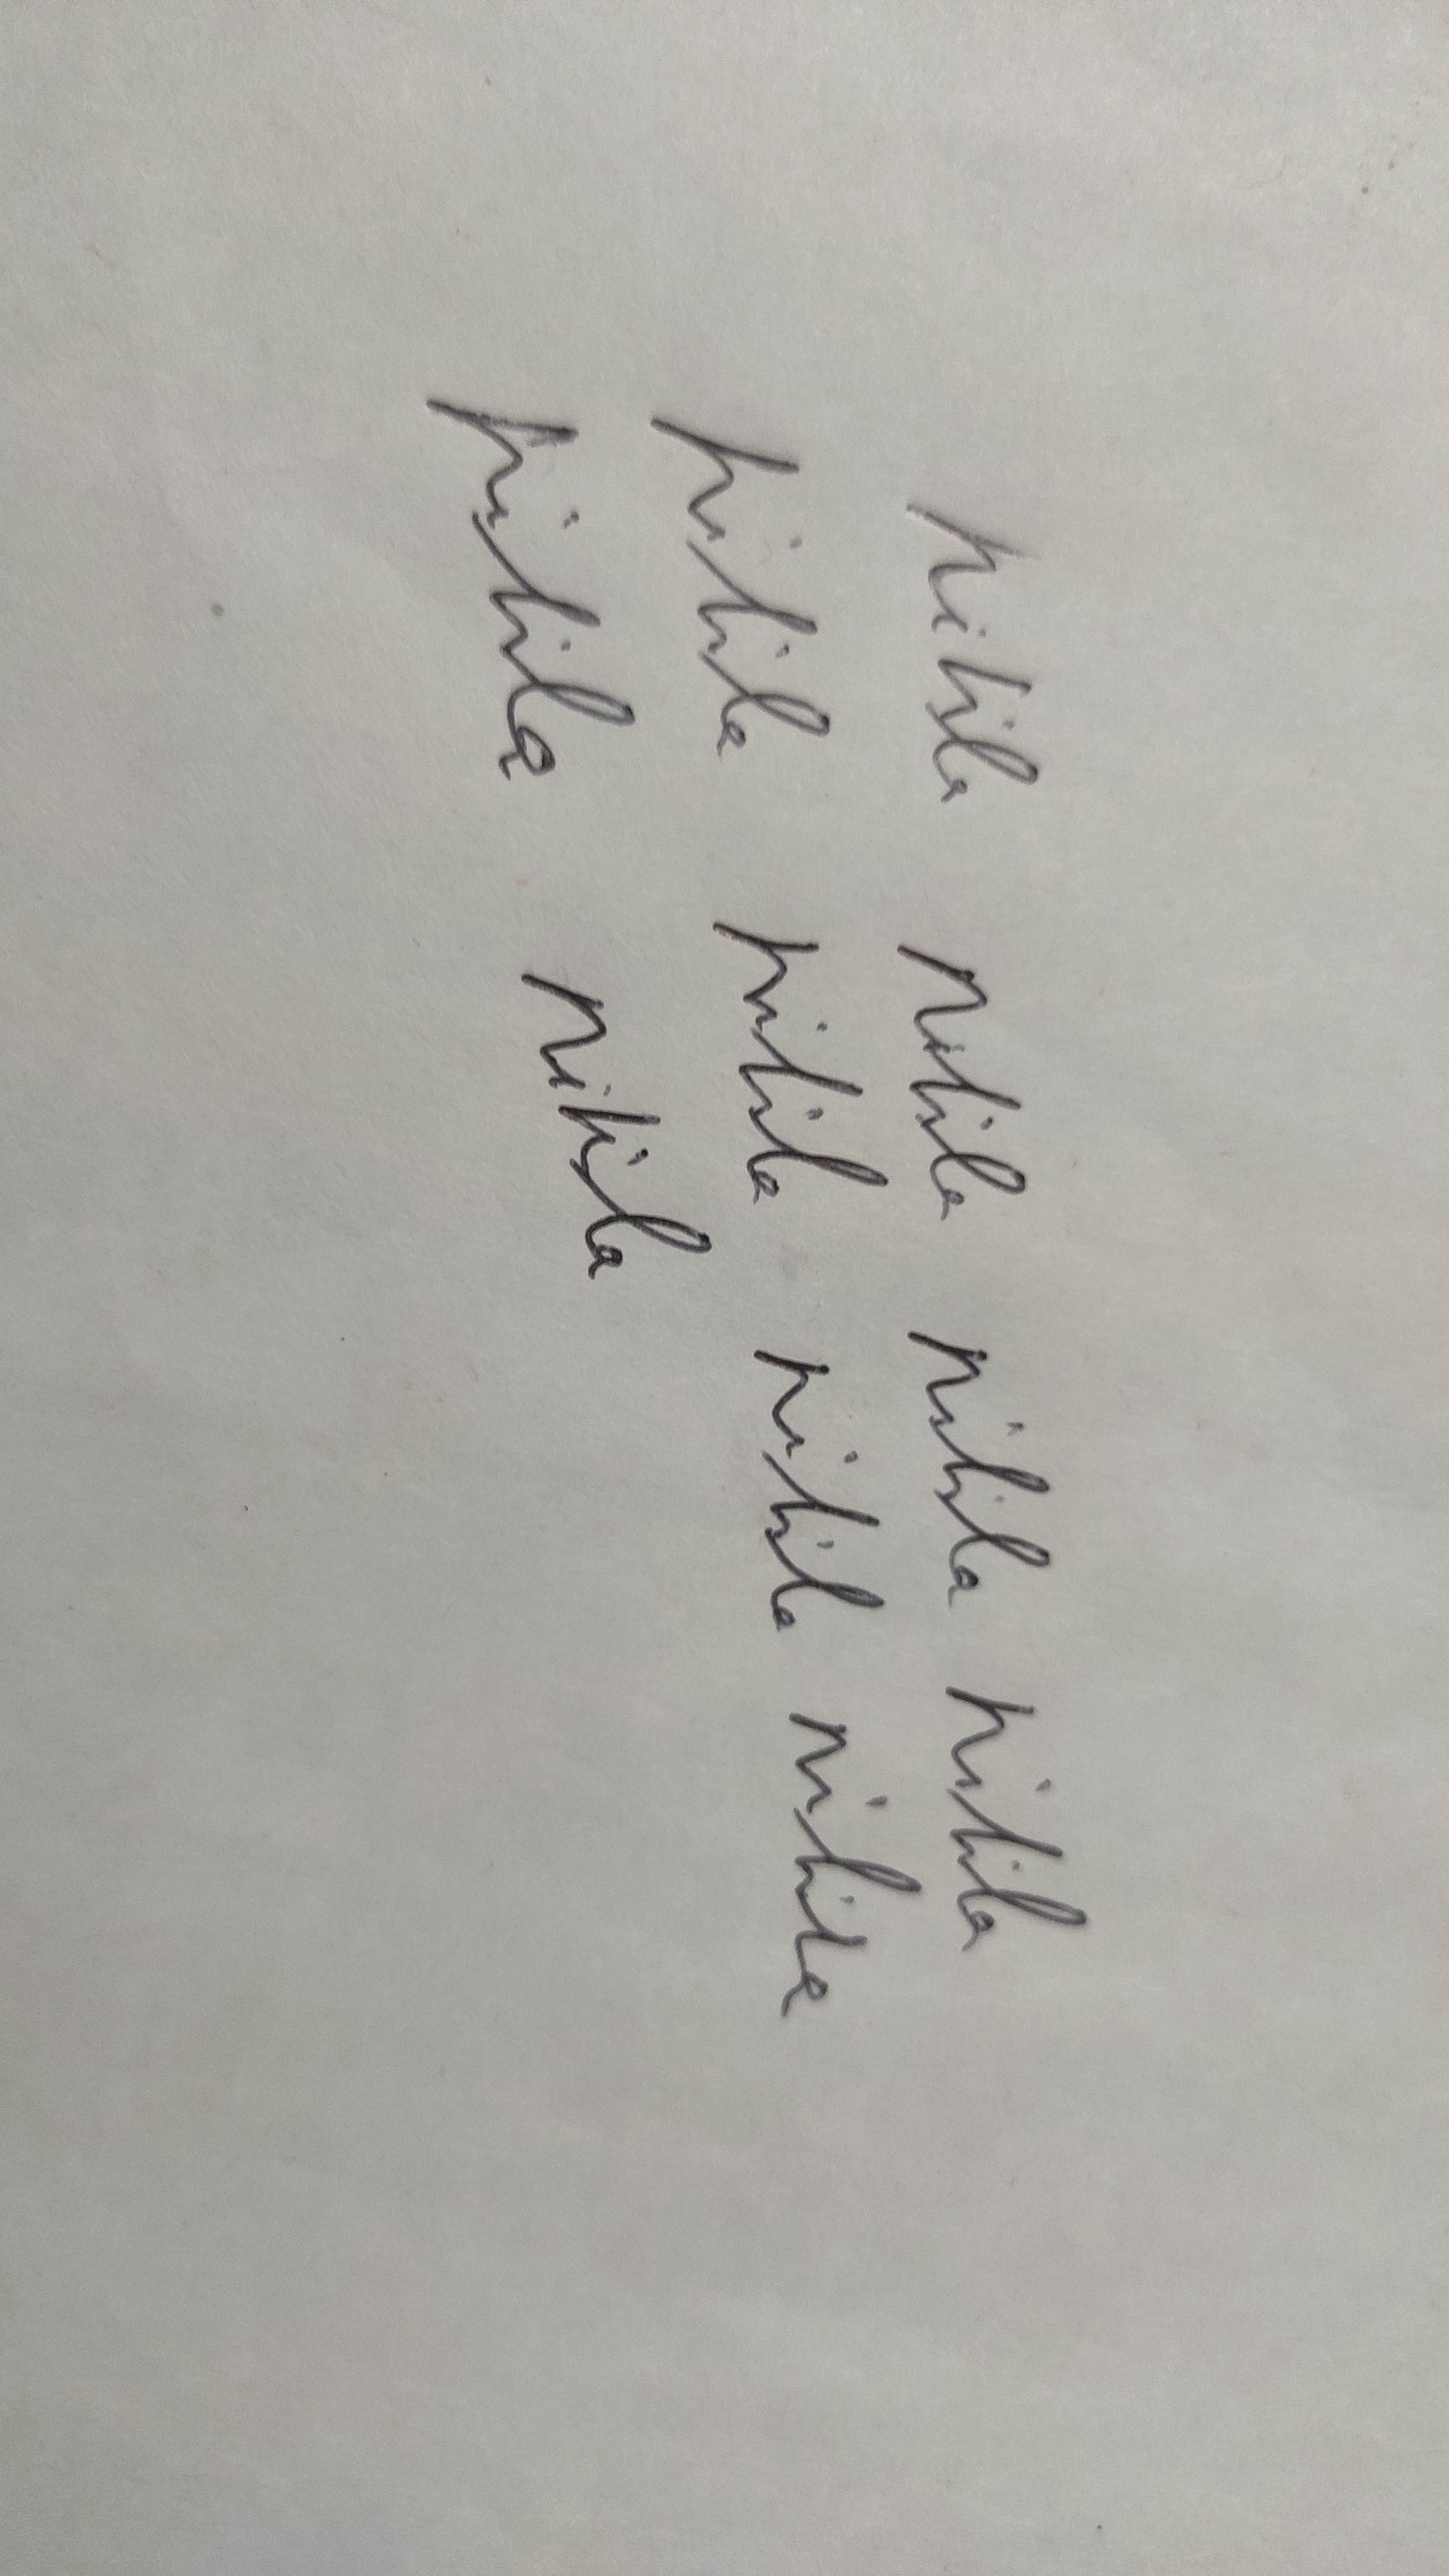 nitila nitila nitila nitila
nitila nitila nitila nitila
nitila nitila